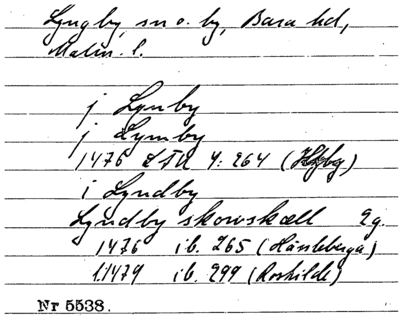 Lyngby, sn o. by, Bara hd,
Malm. l.
j Lynby
j Lymby
1476 LÅU 4:264 (Hbg)
i Lyndby
Lyndby skowskæll 2g.
1476 ib. 265 (Hässleberga)
1.1479 ib. 299 (Roskilde)
Nr 5538.